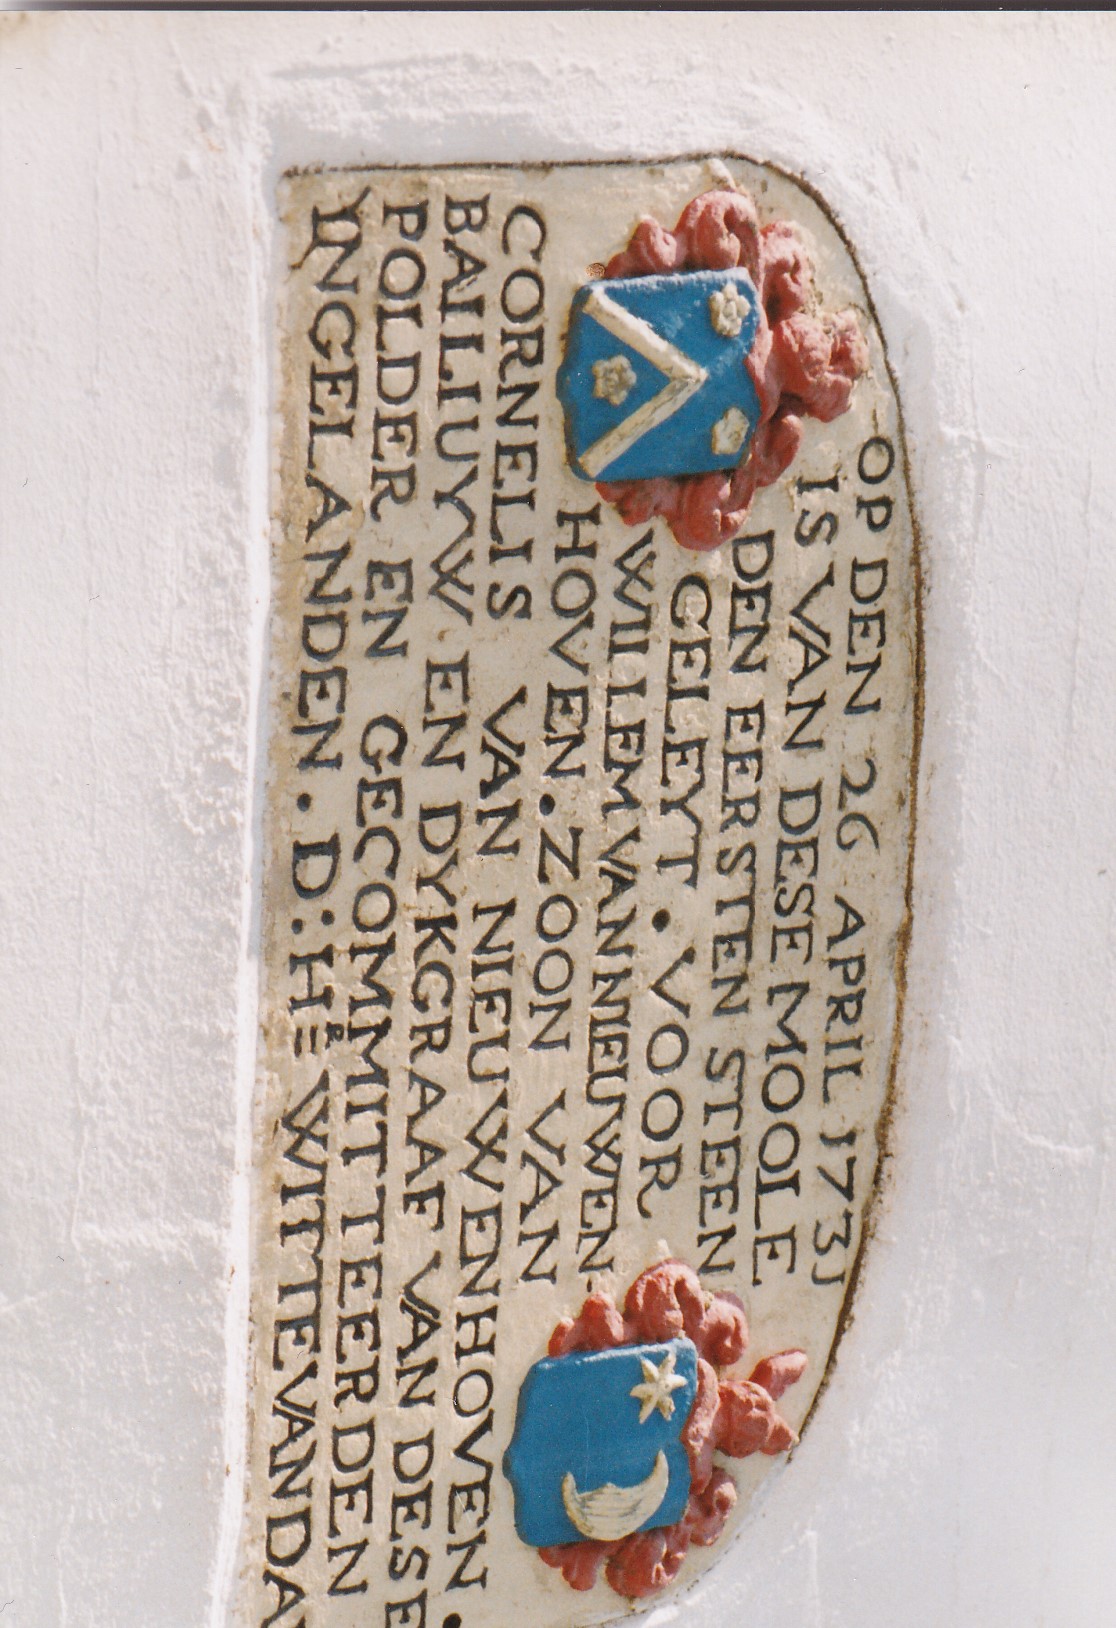 OP DEN 26 APRIL 1731
IS VAN DESE MOOLE
DEN EERSTEN STEEN
GELEYT . VOOR
WILLEM VAN NIEUWEN-
HOVEN . ZOON VAN
CORNELIS VAN NIEUWENHOVEN .
BAILLIUYW EN DYKGRAAF VAN DESE
POLDER EN GECOMMITTEERDEN
INGELANDEN . D:HR WITTE VAN DA